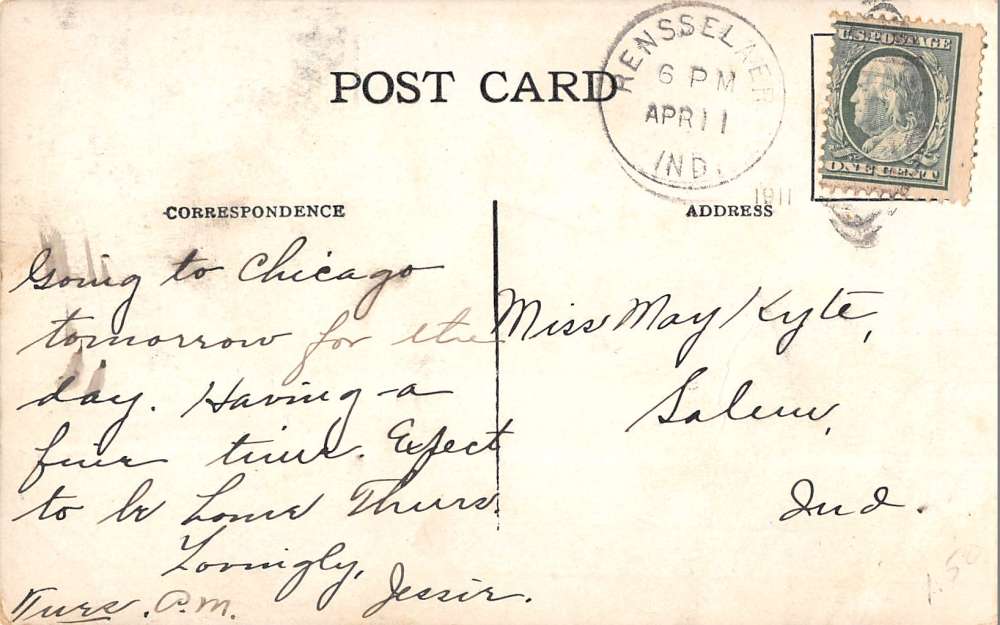 POST CARD
RENSSELAER
6 PM
APR 11
IND.
1911
U.S. POSTAGE
ONE CENT
CORRESPONDENCE
ADDRESS
Going to Chicago
tomorrow for the
day. Having a
fine time. Expect
to be home Thurs.
Lovingly,
Jessie.
Tues. P.M.
Miss May Kyte,
Salem,
Ind.
1.50